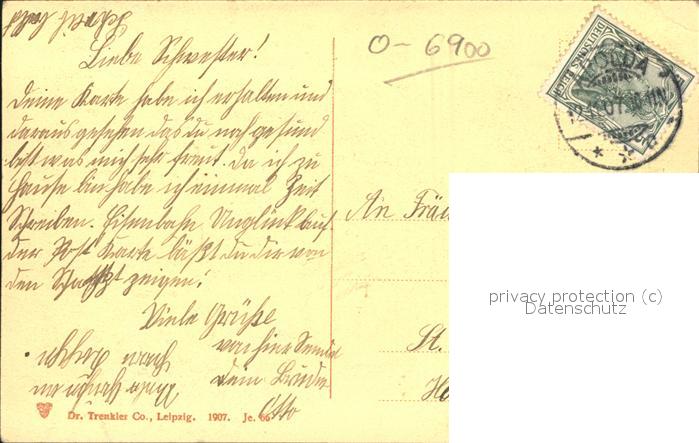 Liebe Schwester!
Deine Karte habe ich erhalten und
daraus gesehen das du noch gesund
bist was mich sehr freut. Da ich zu
Hause bin habe ich einmal Zeit
Schreiben. Eisenbahn Unglück auf
der Post Karte läßt du dir von
den Schatzt zeigen!
Viele Grüße
von hier Sendet
dein Bruder
Otto
O-6900
DEUTSCHES REICH
An Fräu
St.
privacy protection (c)
Datenschutz
Dr. Trenkler Co., Leipzig. 1907. Je. 66